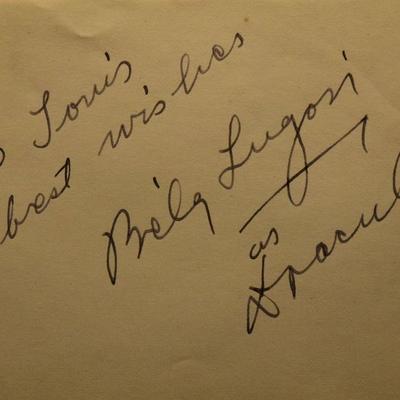 Louis
best wishes
Béla Lugosi
as
Dracul